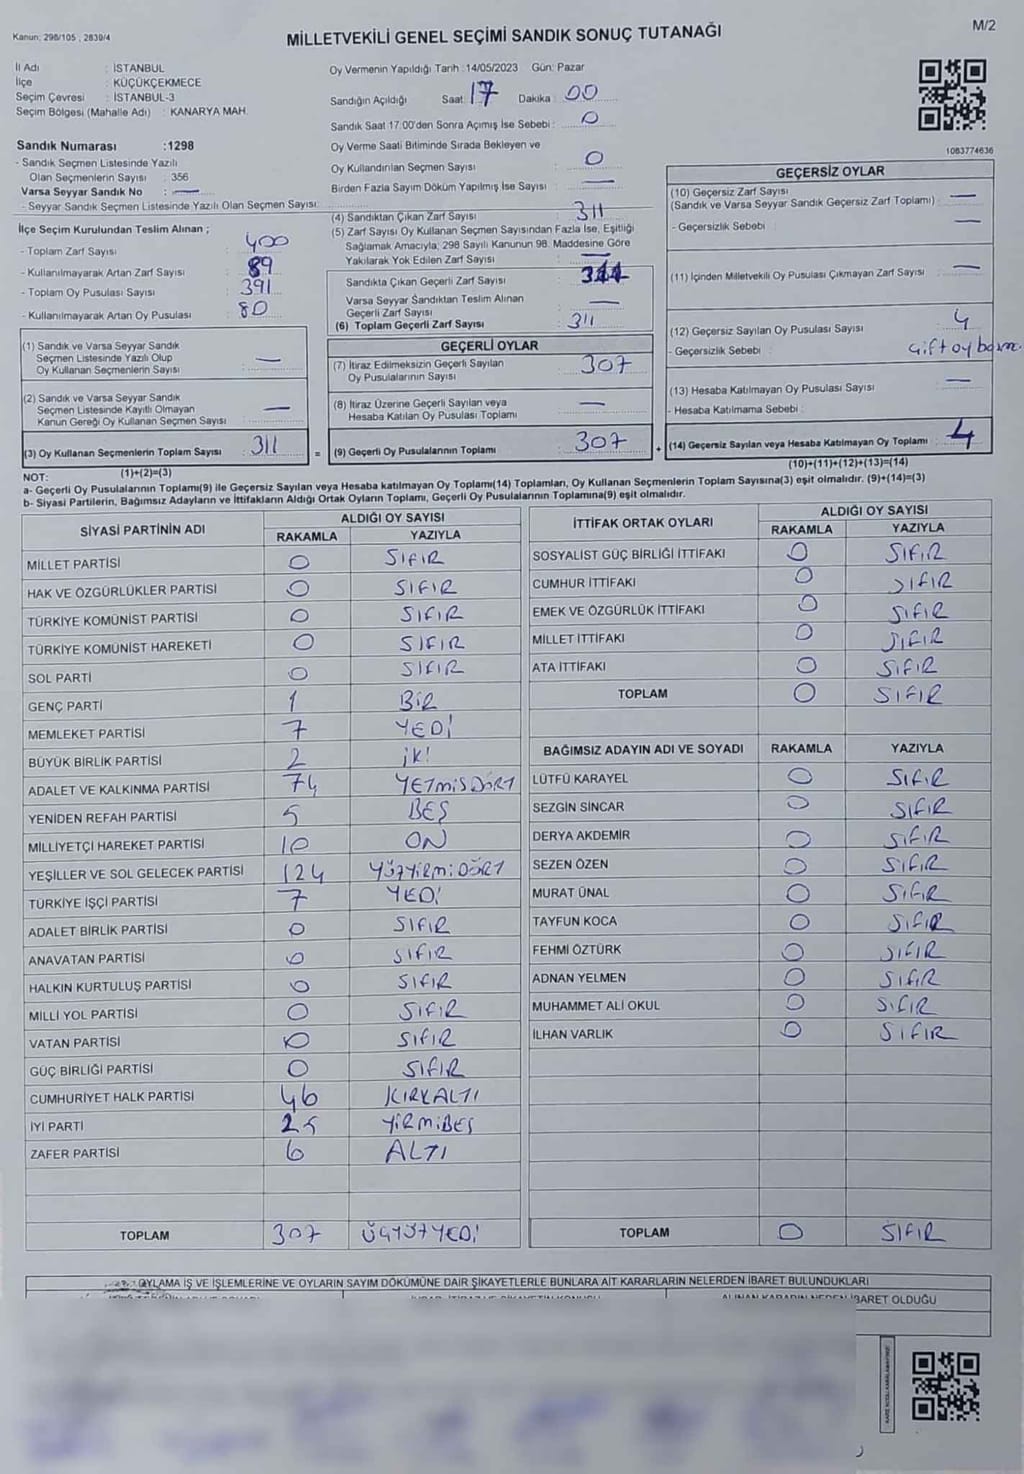 Kanun: 298/105 , 2839/4
MİLLETVEKİLİ GENEL SEÇİMİ SANDIK SONUÇ TUTANAĞI
M/2
İl Adı : İSTANBUL
İlçe : KÜÇÜKÇEKMECE
Seçim Çevresi : İSTANBUL-3
Seçim Bölgesi (Mahalle Adı) : KANARYA MAH.
Sandık Numarası :1298
- Sandık Seçmen Listesinde Yazılı
Olan Seçmenlerin Sayısı : 356
Varsa Seyyar Sandık No : —
- Seyyar Sandık Seçmen Listesinde Yazılı Olan Seçmen Sayısı:
İlçe Seçim Kurulundan Teslim Alınan ;
- Toplam Zarf Sayısı : 400
- Kullanılmayarak Artan Zarf Sayısı : 89
- Toplam Oy Pusulası Sayısı : 391
- Kullanılmayarak Artan Oy Pusulası : 80
(1) Sandık ve Varsa Seyyar Sandık
Seçmen Listesinde Yazılı Olup
Oy Kullanan Seçmenlerin Sayısı : —
(2) Sandık ve Varsa Seyyar Sandık
Seçmen Listesinde Kayıtlı Olmayan
Kanun Gereği Oy Kullanan Seçmen Sayısı : —
(3) Oy Kullanan Seçmenlerin Toplam Sayısı : 311
(1)+(2)=(3)
Oy Vermenin Yapıldığı Tarih :14/05/2023 Gün: Pazar
Sandığın Açıldığı Saat : 17 Dakika : 00
Sandık Saat 17:00'den Sonra Açımış İse Sebebi : 0
Oy Verme Saati Bitiminde Sırada Bekleyen ve
Oy Kullandırılan Seçmen Sayısı : 0
Birden Fazla Sayım Döküm Yapılmış İse Sayısı : —
(4) Sandıktan Çıkan Zarf Sayısı : 311
(5) Zarf Sayısı Oy Kullanan Seçmen Sayısından Fazla İse, Eşitliği
Sağlamak Amacıyla; 298 Sayılı Kanunun 98. Maddesine Göre
Yakılarak Yok Edilen Zarf Sayısı : —
Sandıkta Çıkan Geçerli Zarf Sayısı : 311
Varsa Seyyar Sandıktan Teslim Alınan
Geçerli Zarf Sayısı : —
(6) Toplam Geçerli Zarf Sayısı : 311
GEÇERLİ OYLAR
(7) İtiraz Edilmeksizin Geçerli Sayılan
Oy Pusulalarının Sayısı : 307
(8) İtiraz Üzerine Geçerli Sayılan veya
Hesaba Katılan Oy Pusulası Toplamı : —
= (9) Geçerli Oy Pusulalarının Toplamı : 307
1083774636
GEÇERSİZ OYLAR
(10) Geçersiz Zarf Sayısı
(Sandık ve Varsa Seyyar Sandık Geçersiz Zarf Toplamı) : —
- Geçersizlik Sebebi : —
(11) İçinden Milletvekili Oy Pusulası Çıkmayan Zarf Sayısı : —
(12) Geçersiz Sayılan Oy Pusulası Sayısı : 4
- Geçersizlik Sebebi : Çift oy
(13) Hesaba Katılmayan Oy Pusulası Sayısı : —
- Hesaba Katılmama Sebebi :
+ (14) Geçersiz Sayılan veya Hesaba Katılmayan Oy Toplamı : 4
(10)+(11)+(12)+(13)=(14)
NOT:
a- Geçerli Oy Pusulalarının Toplamı(9) ile Geçersiz Sayılan veya Hesaba katılmayan Oy Toplamı(14) Toplamları, Oy Kullanan Seçmenlerin Toplam Sayısına(3) eşit olmalıdır. (9)+(14)=(3)
b- Siyasi Partilerin, Bağımsız Adayların ve İttifakların Aldığı Ortak Oyların Toplamı, Geçerli Oy Pusulalarının Toplamına(9) eşit olmalıdır.
SİYASİ PARTİNİN ADI ALDIĞI OY SAYISI
RAKAMLA YAZIYLA
MİLLET PARTİSİ 0 SIFIR
HAK VE ÖZGÜRLÜKLER PARTİSİ 0 SIFIR
TÜRKİYE KOMÜNİST PARTİSİ 0 SIFIR
TÜRKİYE KOMÜNİST HAREKETİ 0 SIFIR
SOL PARTİ 0 SIFIR
GENÇ PARTİ 1 BİR
MEMLEKET PARTİSİ 7 YEDİ
BÜYÜK BİRLİK PARTİSİ 2 İKİ
ADALET VE KALKINMA PARTİSİ 74 YETMİŞDÖRT
YENİDEN REFAH PARTİSİ 5 BEŞ
MİLLİYETÇİ HAREKET PARTİSİ 10 ON
YEŞİLLER VE SOL GELECEK PARTİSİ 124 YÜZYİRMİDÖRT
TÜRKİYE İŞÇİ PARTİSİ 7 YEDİ
ADALET BİRLİK PARTİSİ 0 SIFIR
ANAVATAN PARTİSİ 0 SIFIR
HALKIN KURTULUŞ PARTİSİ 0 SIFIR
MİLLİ YOL PARTİSİ 0 SIFIR
VATAN PARTİSİ 0 SIFIR
GÜÇ BİRLİĞİ PARTİSİ 0 SIFIR
CUMHURİYET HALK PARTİSİ 46 KIRKALTI
İYİ PARTİ 25 YİRMİBEŞ
ZAFER PARTİSİ 6 ALTI
TOPLAM 307 ÜÇYÜZYEDİ
İTTİFAK ORTAK OYLARI ALDIĞI OY SAYISI
RAKAMLA YAZIYLA
SOSYALİST GÜÇ BİRLİĞİ İTTİFAKI 0 SIFIR
CUMHUR İTTİFAKI 0 SIFIR
EMEK VE ÖZGÜRLÜK İTTİFAKI 0 SIFIR
MİLLET İTTİFAKI 0 SIFIR
ATA İTTİFAKI 0 SIFIR
TOPLAM 0 SIFIR
BAĞIMSIZ ADAYIN ADI VE SOYADI RAKAMLA YAZIYLA
LÜTFÜ KARAYEL 0 SIFIR
SEZGİN SİNCAR 0 SIFIR
DERYA AKDEMİR 0 SIFIR
SEZEN ÖZEN 0 SIFIR
MURAT ÜNAL 0 SIFIR
TAYFUN KOCA 0 SIFIR
FEHMİ ÖZTÜRK 0 SIFIR
ADNAN YELMEN 0 SIFIR
MUHAMMET ALİ OKUL 0 SIFIR
İLHAN VARLIK 0 SIFIR
TOPLAM 0 SIFIR
OYLAMA İŞ VE İŞLEMLERİNE VE OYLARIN SAYIM DÖKÜMÜNE DAİR ŞİKAYETLERLE BUNLARA AİT KARARLARIN NELERDEN İBARET BULUNDUKLARI
ALINAN KARARIN NEDEN İBARET OLDUĞU